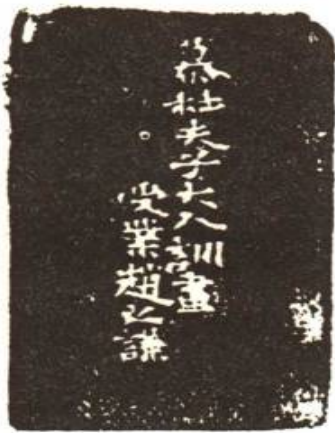 杜夫子大人訓畫
受業趙之謙